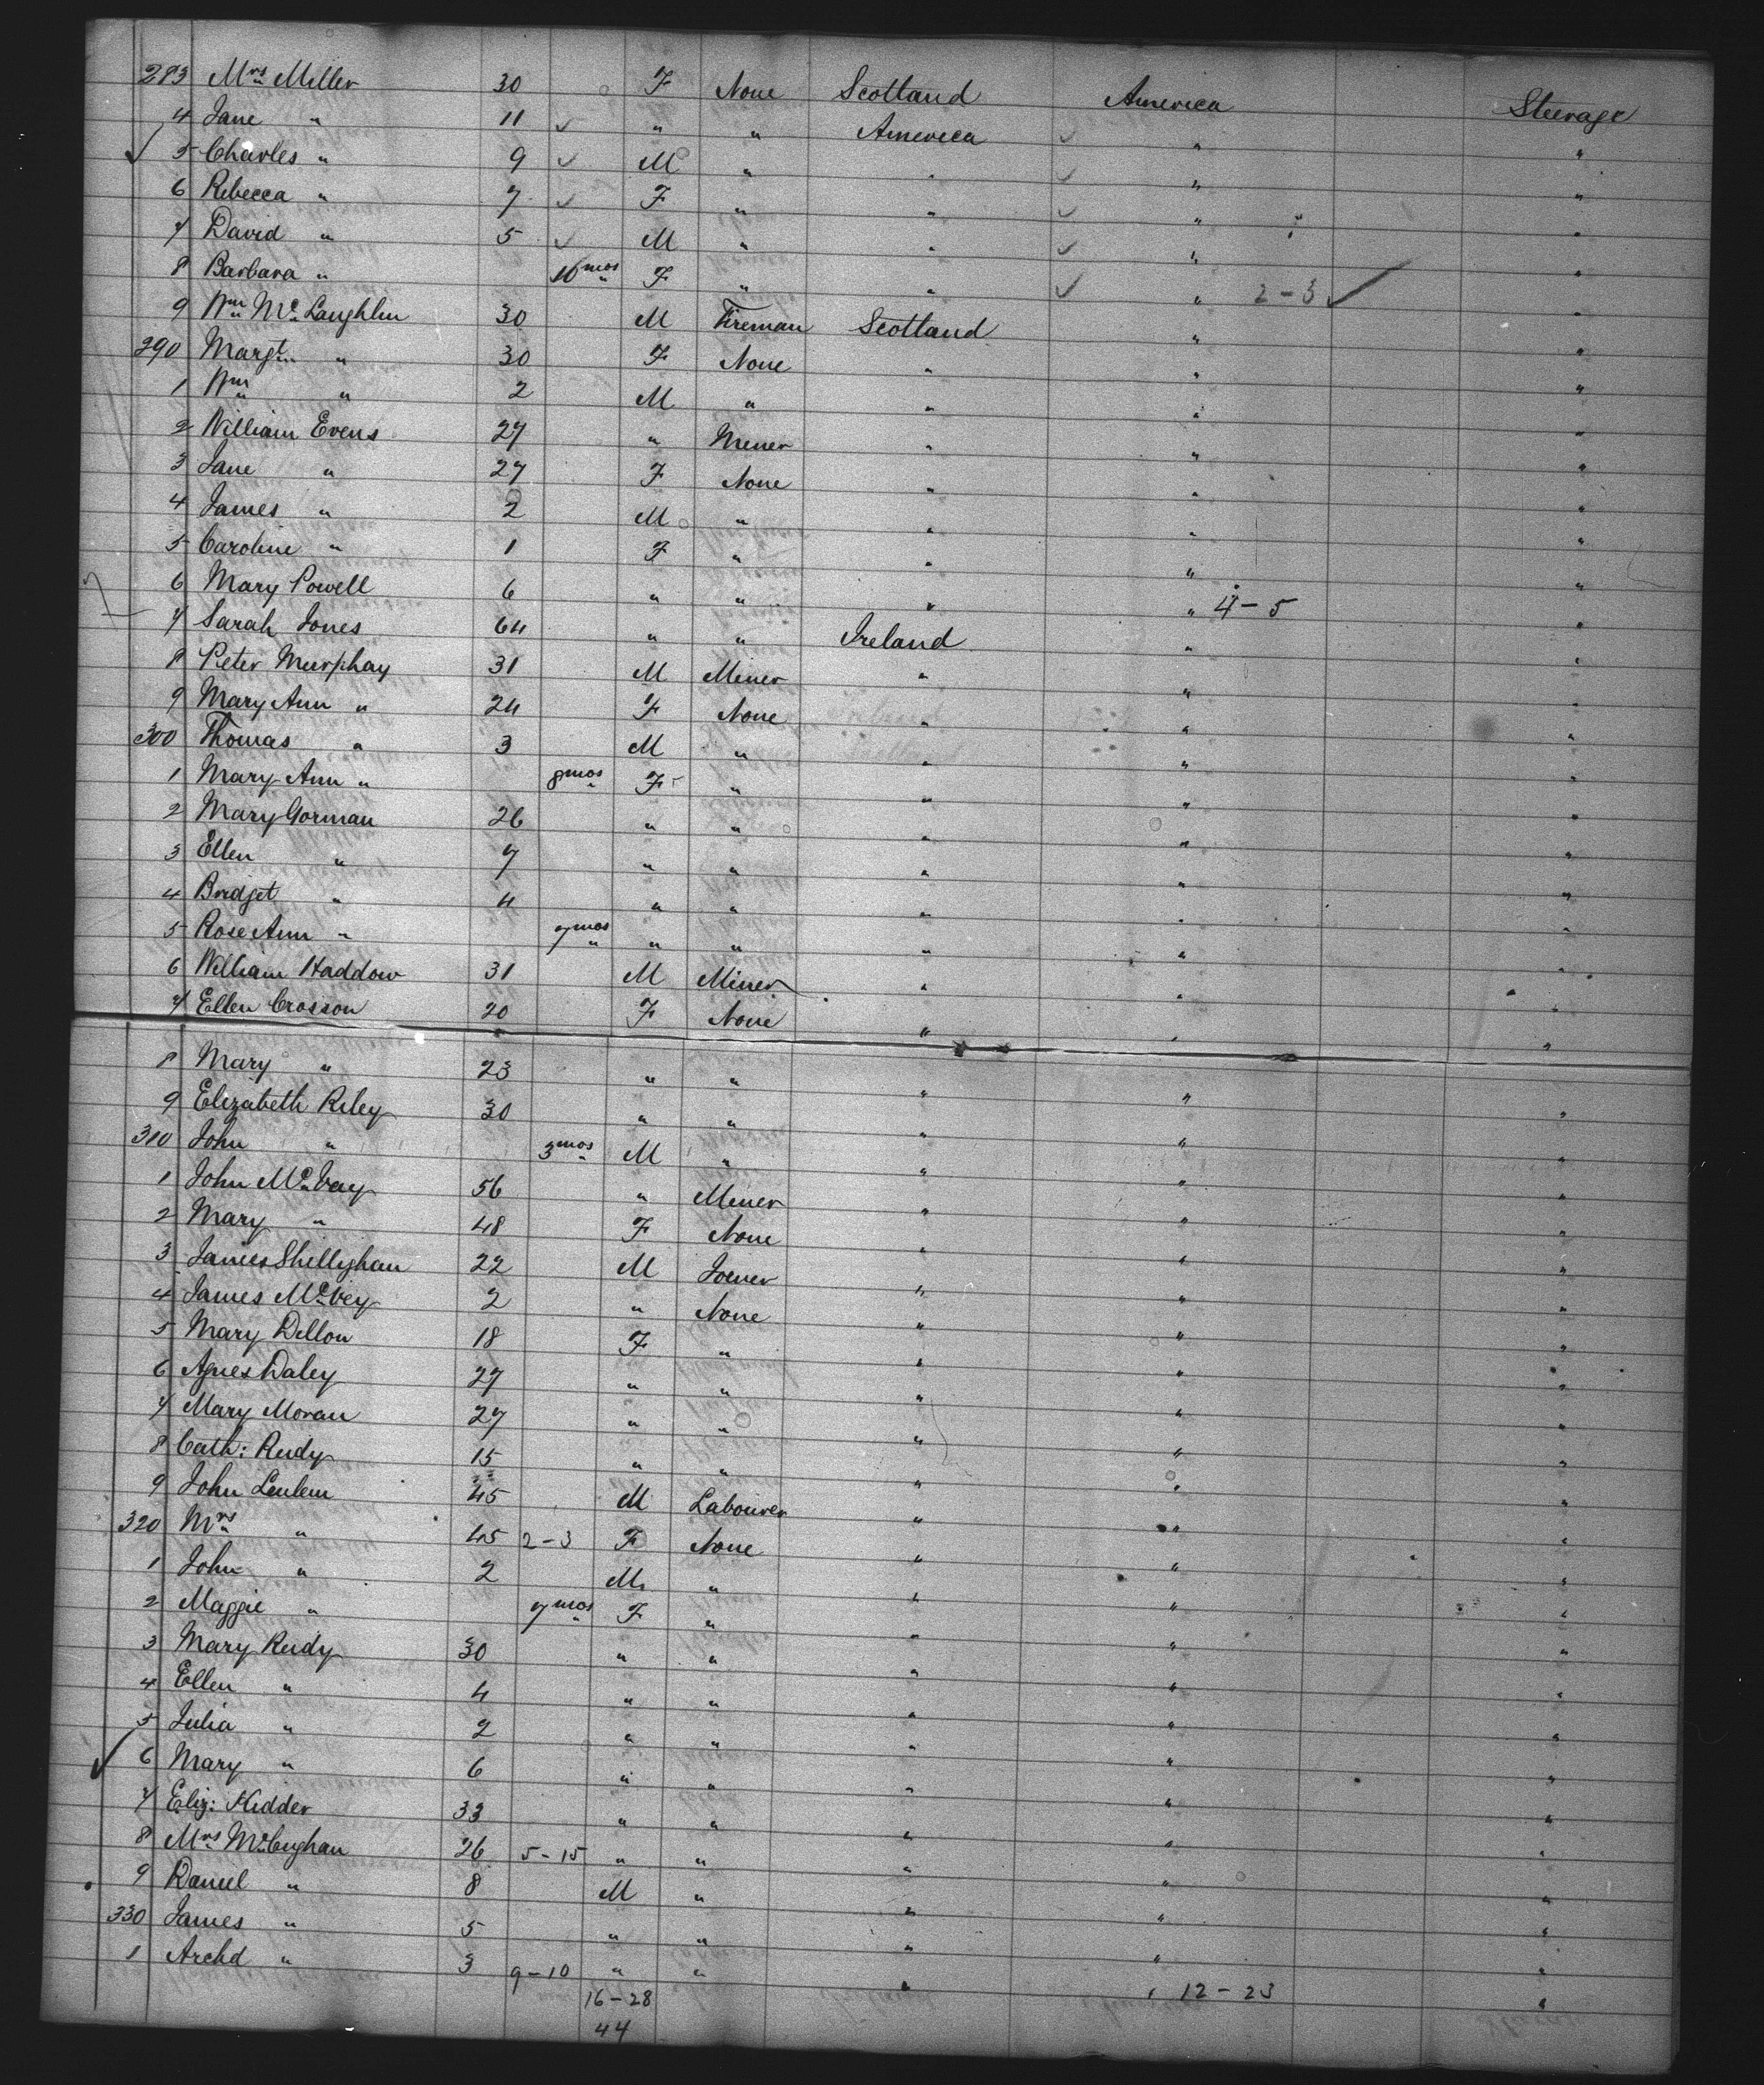 283 Mrs Miller 30 F None Scotland America Steerage
4 Jane " 11 ✓ " " America ✓ " "
✓ 5 Charles " 9 ✓ M " " ✓ " "
6 Rebecca " 7 ✓ F " " ✓ " "
7 David " 5 ✓ M " " ✓ " "
8 Barbara " 10 mos F " " ✓ " 2-3 ✓ "
9 Wm McLaughlin 30 M Fireman Scotland " "
290 Margt " 30 F None " " "
1 Wm " 2 M " " " "
2 William Evens 27 " Miner " " "
3 Jane " 27 F None " " "
4 James " 2 M " " " "
5 Caroline " 1 F " " " "
6 Mary Powell 6 " " " " 4-5 "
7 Sarah Jones 64 " " Ireland " "
8 Peter Murphay 31 M Miner " " "
9 Mary Ann " 24 F None " " "
300 Thomas " 3 M " " " "
1 Mary Ann " 8 mos F " " " "
2 Mary Gorman 26 " " " " "
3 Ellen " 7 " " " " "
4 Bridget " 4 " " " " "
5 Rose Ann " 7 mos " " " " "
6 William Haddow 31 M Miner " " "
7 Ellen Crosson 20 F None " " "
8 Mary " 23 " " " " "
9 Elizabeth Riley 30 " " " " "
310 John " 3 mos M " " " "
1 John McVay 56 " Miner " " "
2 Mary " 48 F None " " "
3 James Shellighan 22 M Joiner " " "
4 James McVey 2 " None " " "
5 Mary Dillon 18 F " " " "
6 Agnes Daley 27 " " " " "
7 Mary Moran 27 " " " " "
8 Cath: Reidy 15 " " " " "
9 John 45 M Labourer " " "
320 Mrs " 45 2-3 F None " " "
1 John " 2 M " " " "
2 Maggie " 7 mos F " " " "
3 Mary Reidy 30 " " " " "
4 Ellen " 4 " " " " "
5 Julia " 2 " " " " "
✓ 6 Mary " 6 " " " " "
7 Eliz: Kidder 33 " " " " "
8 Mrs McCughan 26 5-15 " " " " "
9 Daniel " 8 M " " " "
330 James " 5 " " " " "
1 Archd " 3 9-10 " " " " 12-23 "
16-28
44